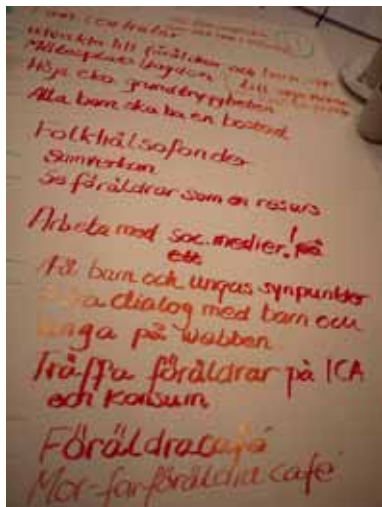 Familjecentraler
utveckla till föräldrar och barn
Mötesplats Ungdom till
Höja eko grundtryggheten
Alla barn ska ha en bostad
Folkhälsofonder
Samverkan
Se föräldrar som en resurs
Arbeta med soc. medier! på
ett
Få barn och ungas synpunkter
dialog med barn och
unga på webben.
Träffa föräldrar på ICA
och Konsum
Föräldracafé
Mor-farföräldra café